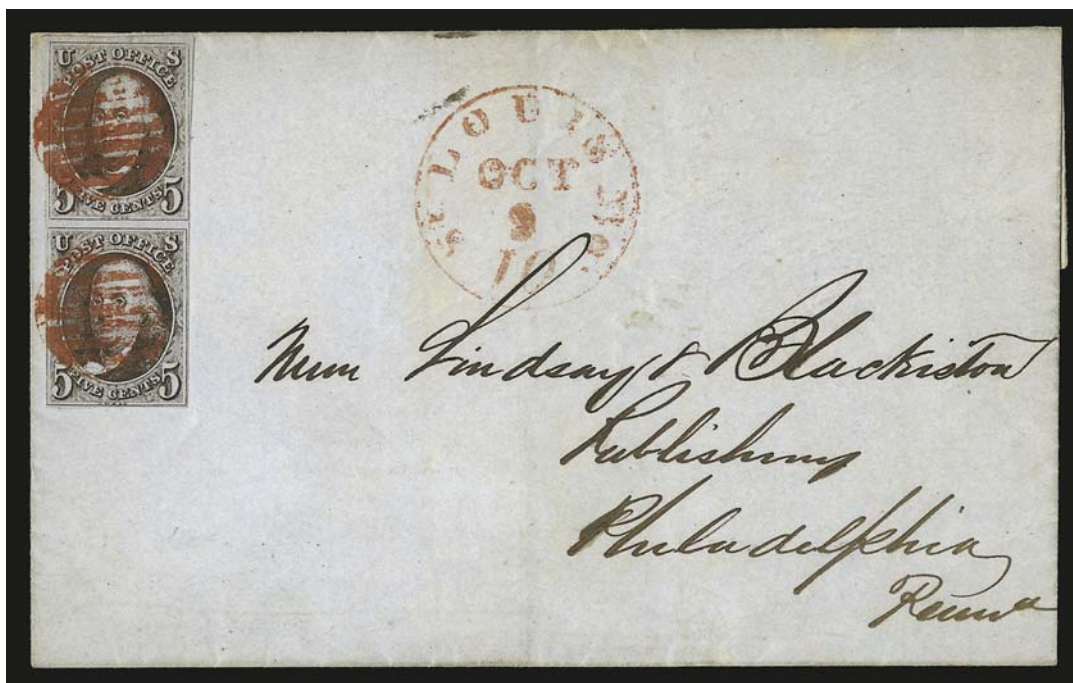 U S
POST OFFICE
FIVE CENTS
5 5
U S
POST OFFICE
FIVE CENTS
5 5
ST LOUIS Mo.
OCT
9
10
Lindsay & Blackiston
Publishing
Philadelphia
Penna